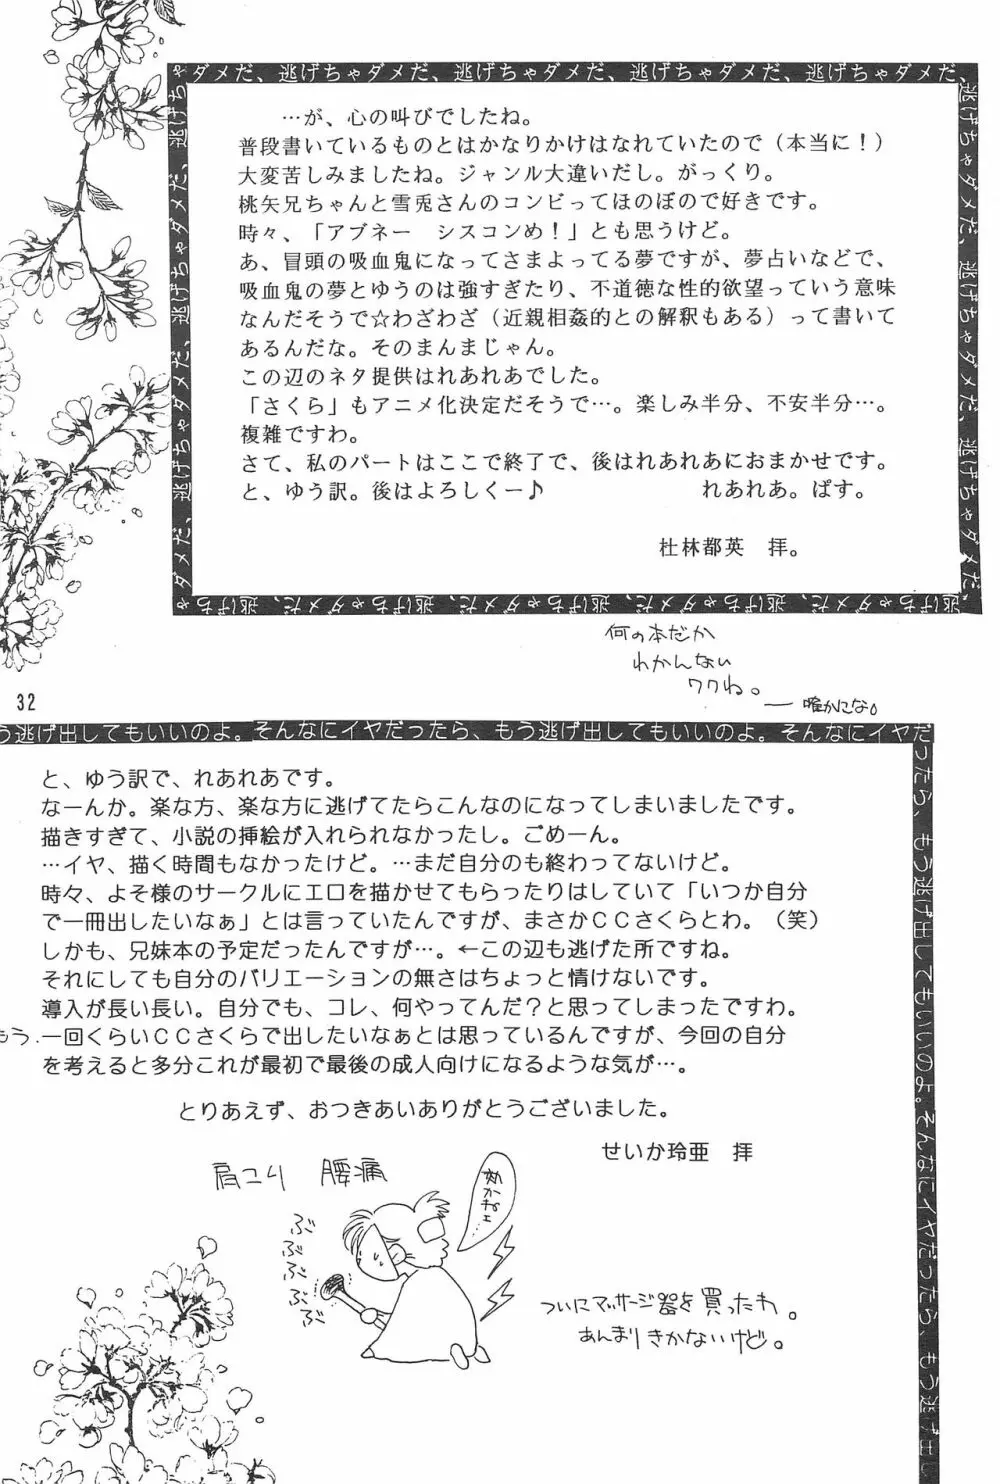 ゃダメだ、逃げちゃダメだ、逃げちゃダメだ、逃げちゃダメだ、
…が、心の叫びでしたね。
普段書いているものとはかなりかけはなれていたので（本当に！）
大変苦しみましたね。ジャンル大違いだし。がっくり。
桃矢兄ちゃんと雪兎さんのコンビってほのぼので好きです。
時々、「アブネー　シスコンめ！」とも思うけど。
あ、冒頭の吸血鬼になってさまよってる夢ですが、夢占いなどで、
吸血鬼の夢とゆうのは強すぎたり、不道徳な性的欲望っていう意味
なんだそうで☆わざわざ（近親相姦的との解釈もある）って書いて
あるんだな。そのまんまじゃん。
この辺のネタ提供はれあれあでした。
「さくら」もアニメ化決定だそうで…。楽しみ半分、不安半分…。
複雑ですわ。
さて、私のパートはここで終了で、後はれあれあにおまかせです。
と、ゆう訳。後はよろしくー♪　　　　　　　れあれあ。ぱす。
杜林都英　拝。
何の本だか
わかんない
ワクね。
― 確かにな。
32
う逃げ出してもいいのよ。そんなにイヤだったら、もう逃げ出してもいいのよ。そんなにイヤだ
ったら、もう逃げ出してもいいのよ。そんなにイヤだったら、もう逃げ出し
と、ゆう訳で、れあれあです。
なーんか。楽な方、楽な方に逃げてたらこんなのになってしまいましたです。
描きすぎて、小説の挿絵が入れられなかったし。ごめーん。
…イヤ、描く時間もなかったけど。…まだ自分のも終わってないけど。
時々、よそ様のサークルにエロを描かせてもらったりはしていて「いつか自分
で一冊出したいなぁ」とは言っていたんですが、まさかＣＣさくらとわ。（笑）
しかも、兄妹本の予定だったんですが…。←この辺も逃げた所ですね。
それにしても自分のバリエーションの無さはちょっと情けないです。
導入が長い長い。自分でも、コレ、何やってんだ？と思ってしまったですわ。
もう．一回くらいＣＣさくらで出したいなぁとは思っているんですが、今回の自分
を考えると多分これが最初で最後の成人向けになるような気が…。
とりあえず、おつきあいありがとうございました。
せいか玲亜　拝
肩こり　腰痛
ぶぶぶぶぶぶ
ついにマッサージ器を買ったわ。
あんまりきかないけど。